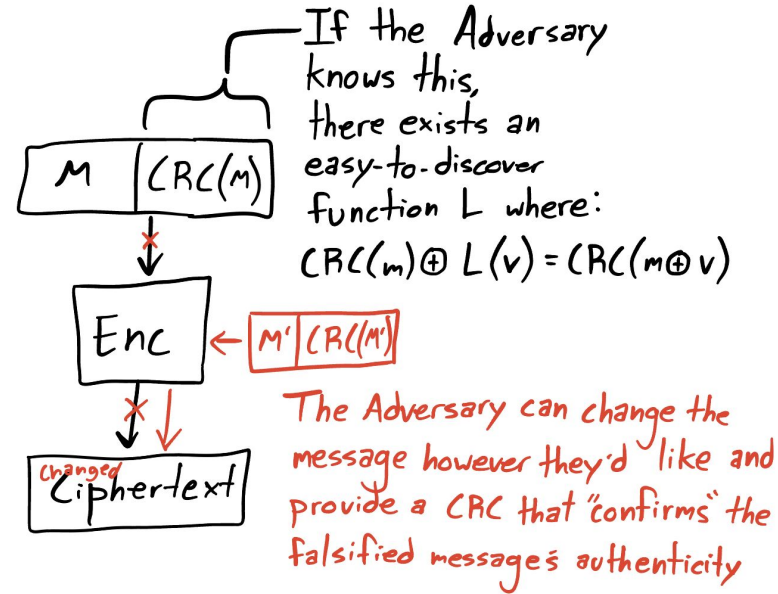 If the Adversary
knows this,
there exists an
easy-to-discover
function L where:
CRC(m)⊕ L(v) = CRC(m⊕v)
M CRC(M)
Enc
M' CRC(M')
changed
Ciphertext
The Adversary can change the
message however they'd like and
provide a CRC that "confirms" the
falsified message's authenticity